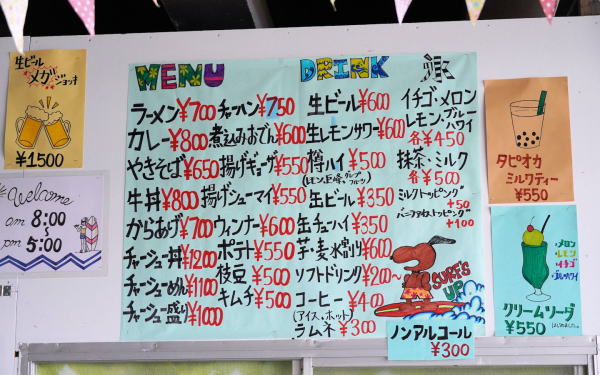 生ビール
メガジョッキ
¥1500
Welcome
am 8:00
~
pm 5:00
MENU
ラーメン¥700
カレー¥800
やきそば¥650
牛丼¥800
からあげ¥700
チャーシュー丼¥1200
チャーシューめん¥1100
チャーシュー盛り¥1000
チャーハン¥750
煮込みおでん¥600
揚げギョーザ¥550
揚げシューマイ¥550
ウィンナー¥600
ポテト¥550
枝豆¥500
キムチ¥500
DRINK
生ビール¥600
生レモンサワー¥600
樽ハイ¥500
缶ビール¥350
缶チューハイ¥350
芋・麦水割り¥600
ソフトドリンク¥200~
コーヒー¥400
(アイス、ホット)
ラムネ¥300
氷
イチゴ・メロン
レモン、ブルーハワイ
各¥450
抹茶・ミルク
各¥500
ミルクトッピング
+50
バニラアイストッピング
+100
SURF'S
UP
ノンアルコール
¥300
タピオカ
ミルクティー
¥550
・メロン
・レモン
・イチゴ
・ブルーハワイ
クリームソーダ
¥550